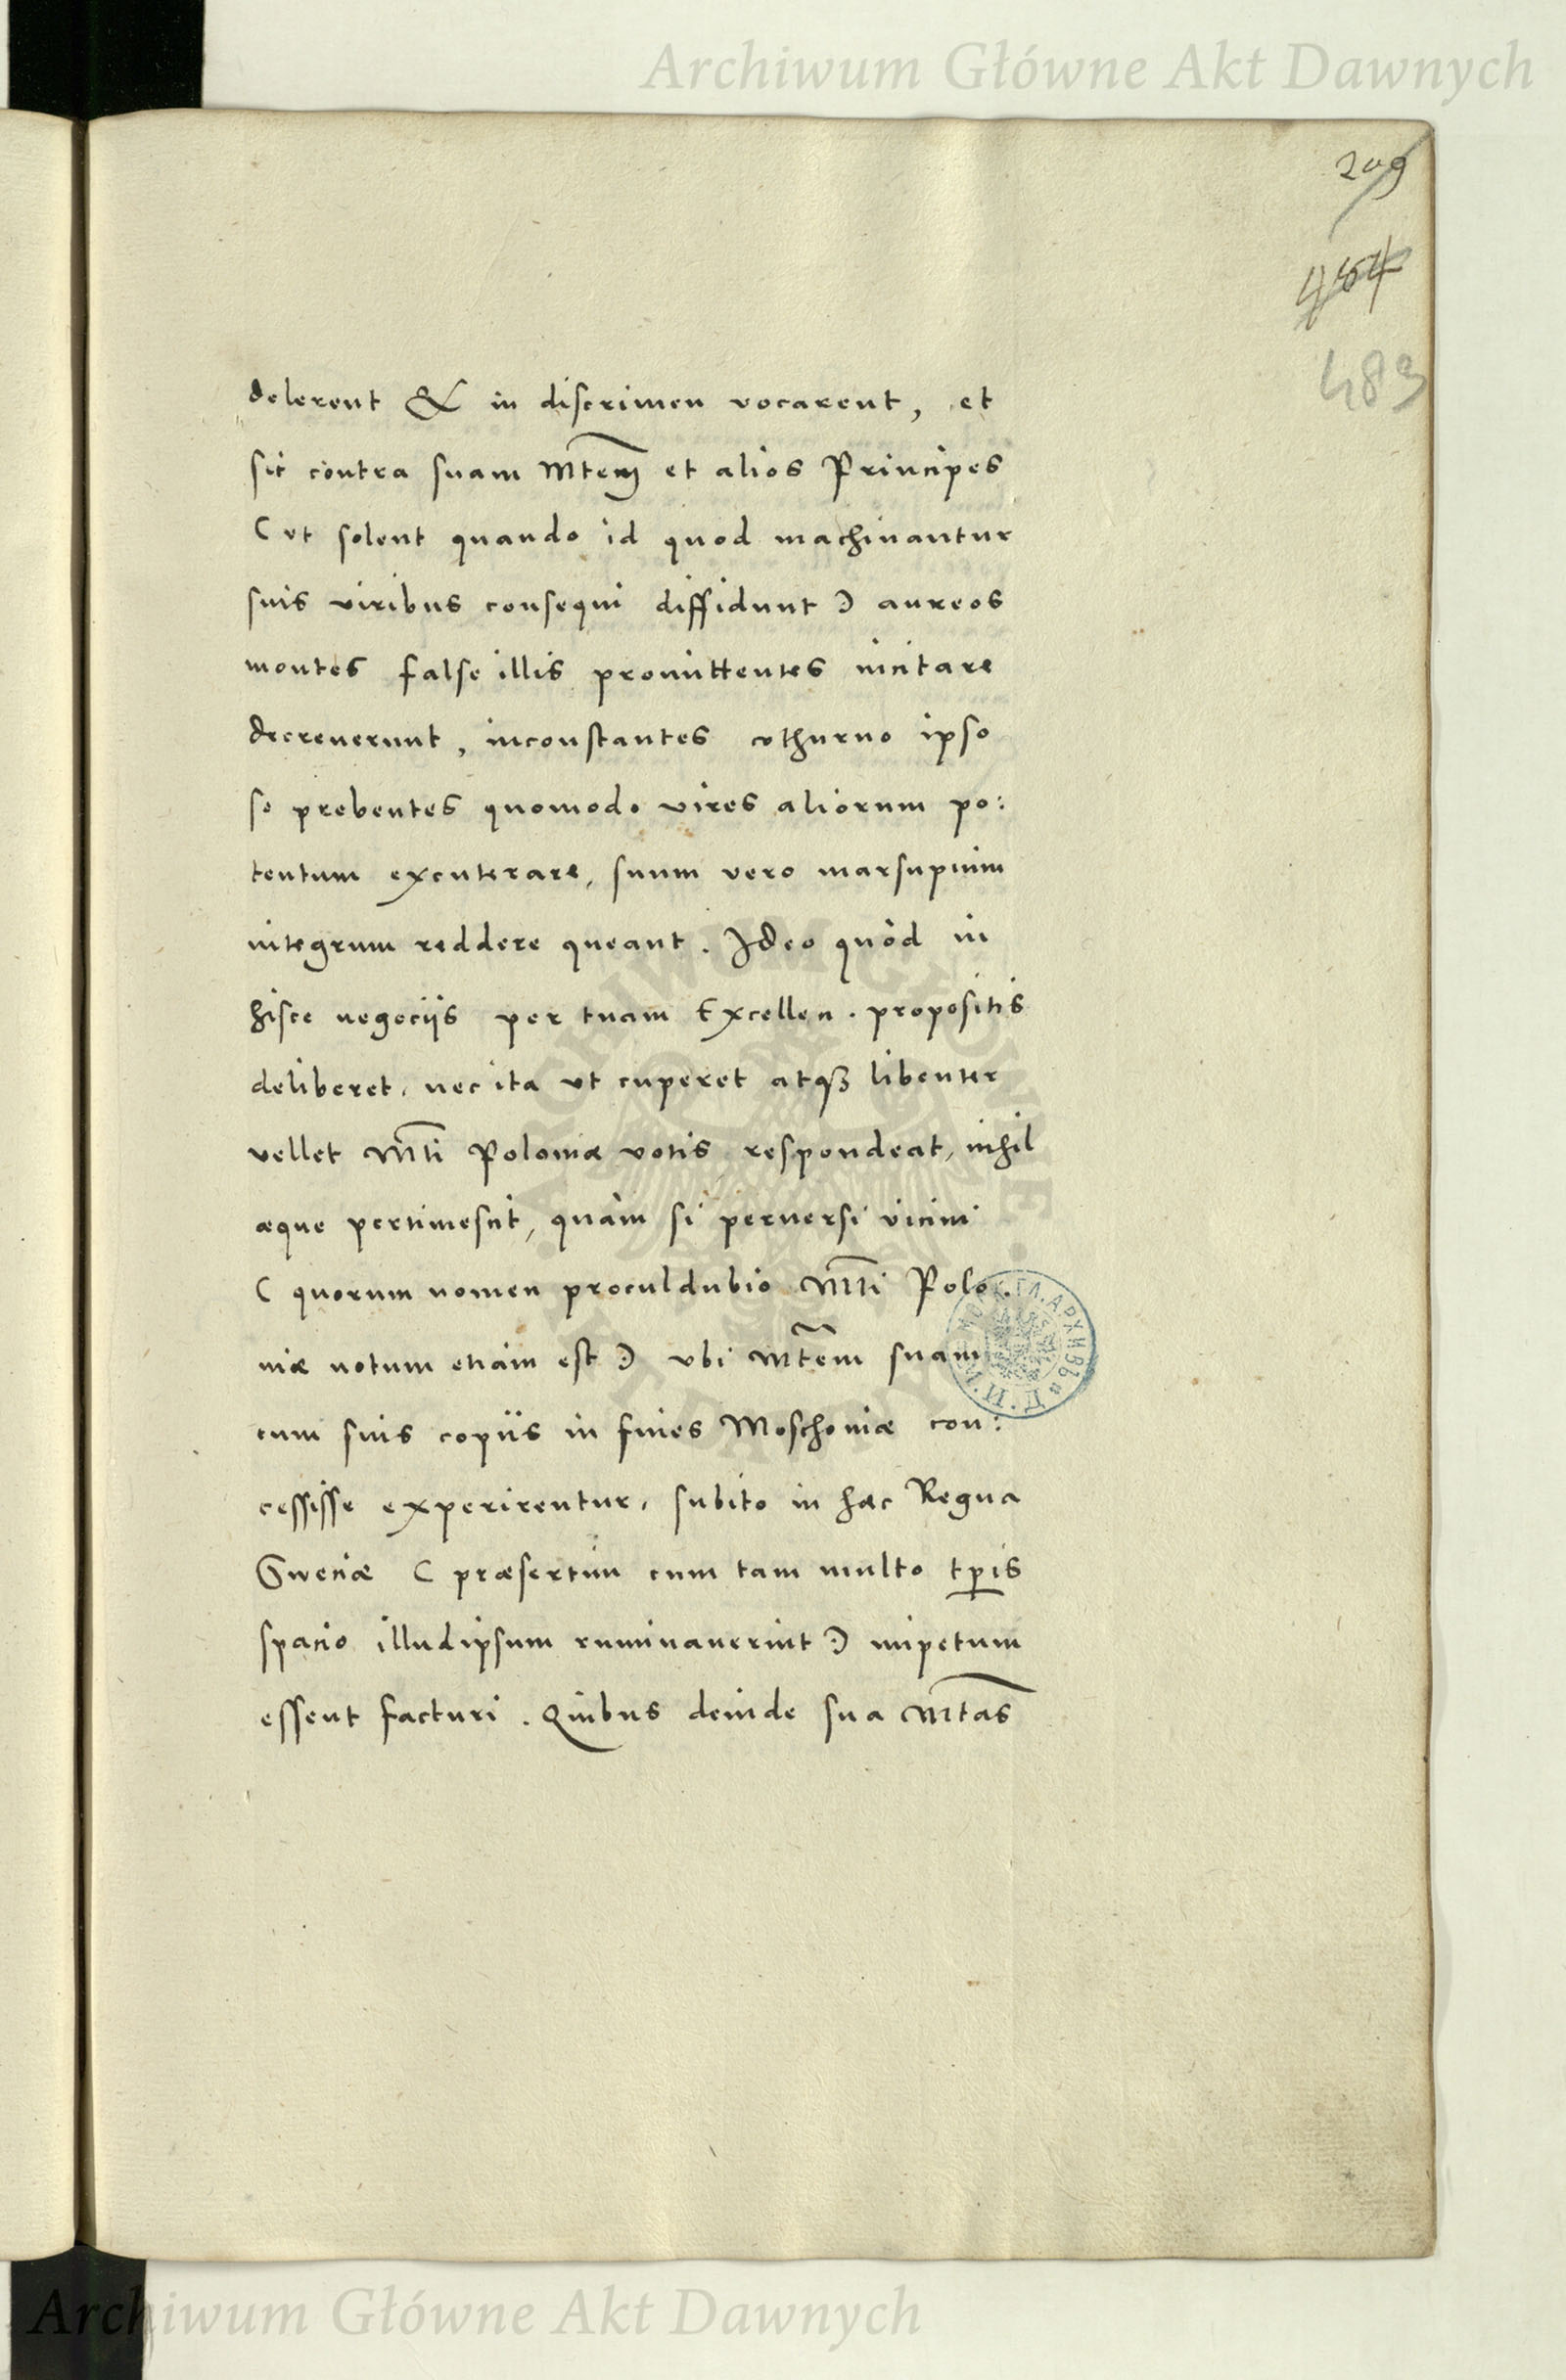 Archiwum Główne Akt Dawnych
209
483
delerent & in discrimen vocarent, et
sic contra suam Mtem et alios Principes
( ut solent quando id quod machinantur
suis viribus consequi diffidunt ) aureos
montes false illis promittentes incitare
decreverunt, inconstantes cothurno ipso
se prebentes quomodo vires aliorum po:
tentum exenterare, suum vero marsupium
integrum reddere queant. Ideo quòd in
hisce negociis per tuam Excellen. propositis
deliberet, nec ita ut cuperet atq3 libenter
vellet Mti Poloniæ votis respondeat, nihil
æque pertimescit, quàm si perversi vicini
( quorum nomen proculdubio Mti Polo.
niæ notum etiam est ) ubi Mtem suam
cum suis copiis in fines Moschoviæ con:
cessisse experirentur, subito in hæc Regna
Sweciæ ( præsertim cum tam multo tpis
spacio illudipsum ruminaverint ) impetum
essent facturi. Quibus deinde sua Mtas
Archiwum Główne Akt Dawnych